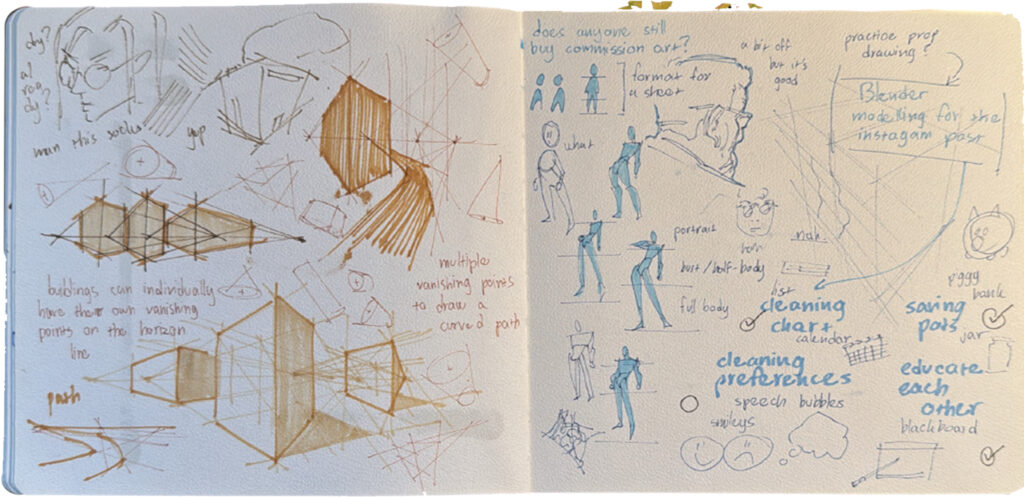 dry?
al
rea
dy?
man this sucks
yup
buildings can individually
have their own vanishing
points on the horizon
line
multiple
vanishing points
to draw a
curved path
path
does anyone still
buy commission art?
format for
a sheet
a bit off
but it's
good
practice prop
drawing?
Blender
modelling for the
instagam post
what
portrait
bust/half-body
full body
nah
list
cleaning
chart
calendar
saving
pots
piggy
bank
jar
cleaning
preferences
speech bubbles
smileys
educate
each
other
blackboard